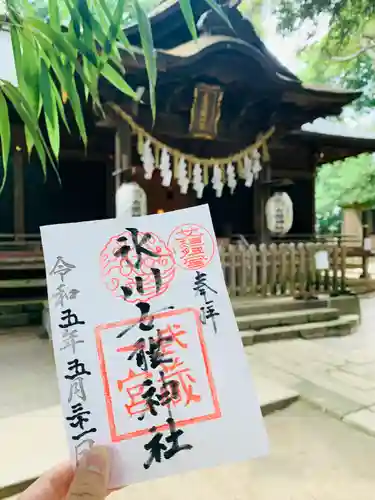 奉拝
武蔵
一宮
氷川女體神社
令和五年五月三十一日